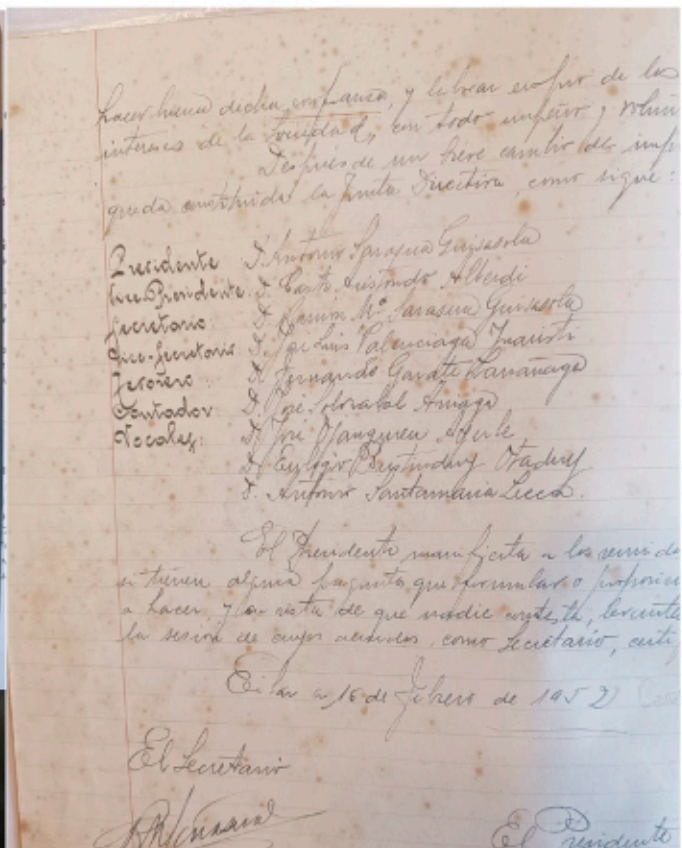 hacer buena dicha confianza, y laborar en pro de los
intereses de la Sociedad, con todo empeño y volun
Después de un breve cambio de imp
queda constituida la Junta Directiva, como sigue:
Presidente D. Antonio Sarasua Guisasola
Vice-Presidente D. Aristondo Alberdi
Secretario D. Ramón Mª Sarasua Guisasola
Vice-Secretario D. José Luis Valenciaga Juaristi
Tesorero: D. Fernando Garate Larrañaga
Contador D. José Arriaga
Vocales: D. José Oyanguren
D. Eulogio
D. Antonio Santamaria Lecea.
El Presidente manifiesta a los reunido
si tienen alguna pregunta que formular o proposici
a hacer, y en vista de que nadie contesta, levanta
la sesión de cuyos acuerdos, como Secretario, certi
Eibar a 16 de Febrero de 1952
El Secretario
El Presidente